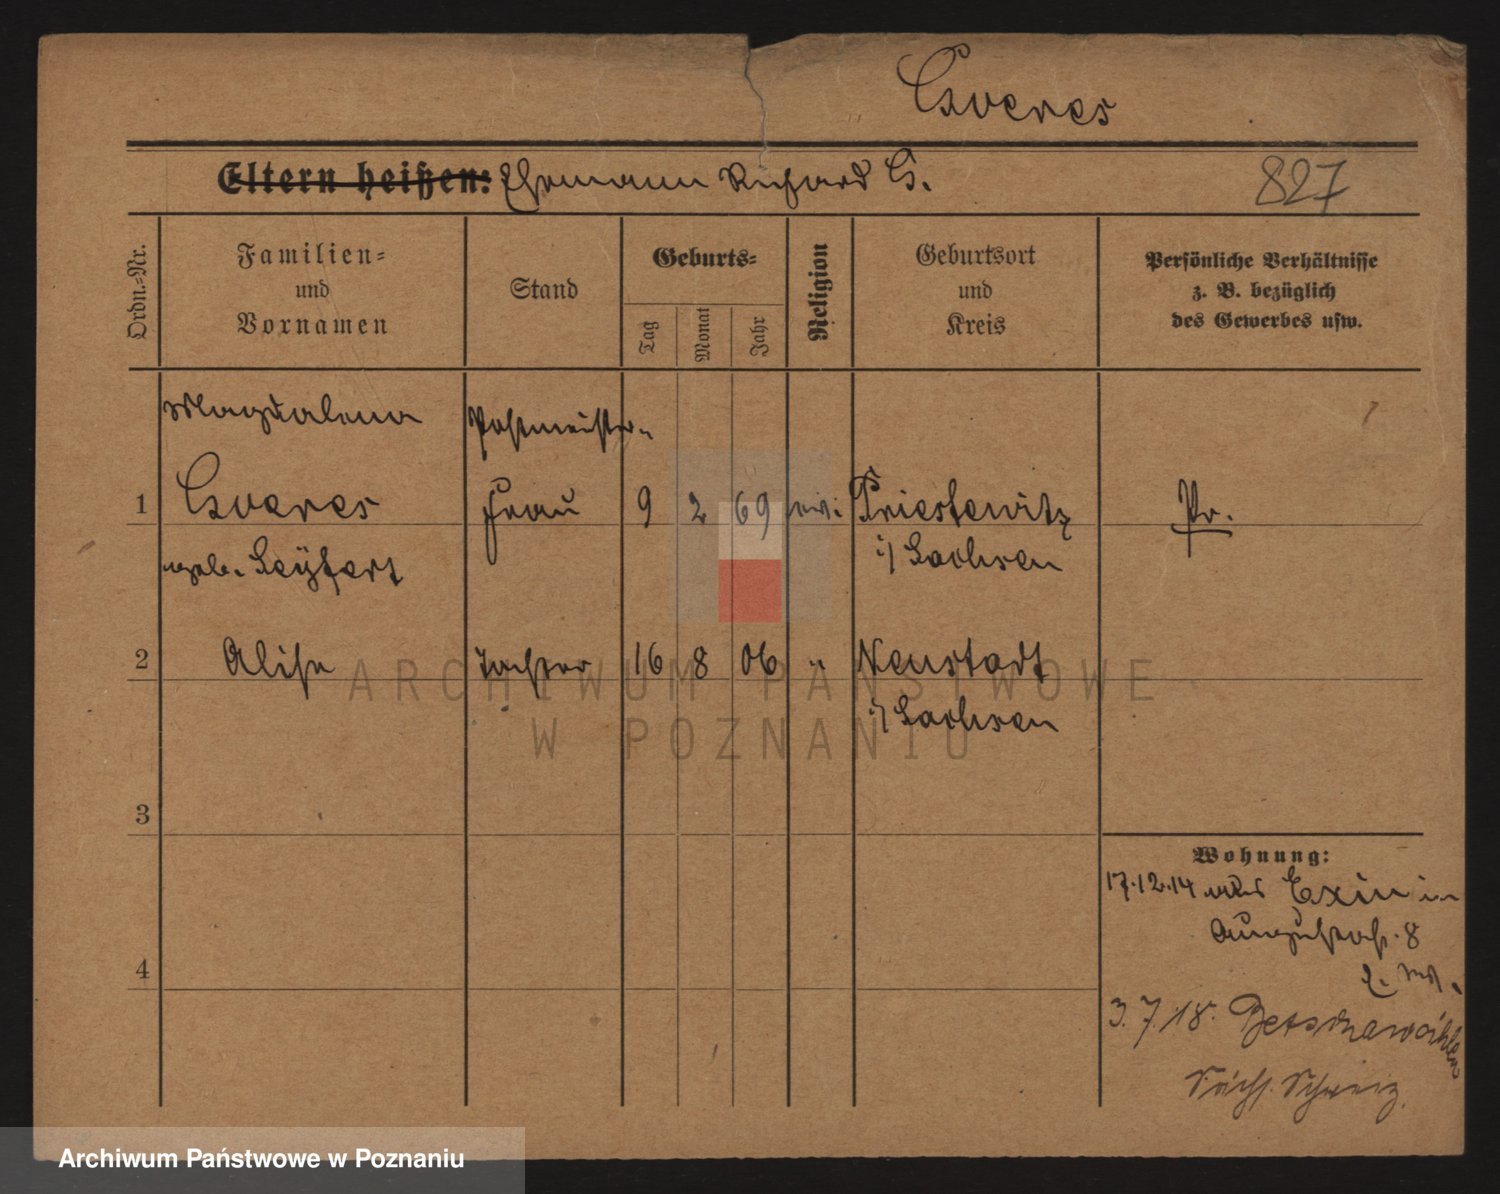 Everes
Eltern heißen: Ehemann Richard E.
827
Ordn.-Nr.
Familien-
und
Vornamen
Stand
Geburts-
Tag
Monat
Jahr
Religion
Geburtsort
und
Kreis
Persönliche Verhältnisse
z. B. bezüglich
des Gewerbes usw.
Magdalena
Postmeister-
1 Everes Frau 9 2 69 ev. Priestewitz Pr.
geb. Seyfert i/ Sachsen
2 Alise Tochter 16 8 06 " Neustadt
i/ Sachsen
3
4
Wohnung:
17.12.14 aus Exin in
Augustastr. 8
3.7.18.
Sächs. Schweiz.
ARCHIWUM PAŃSTWOWE
W POZNANIU
Archiwum Państwowe w Poznaniu